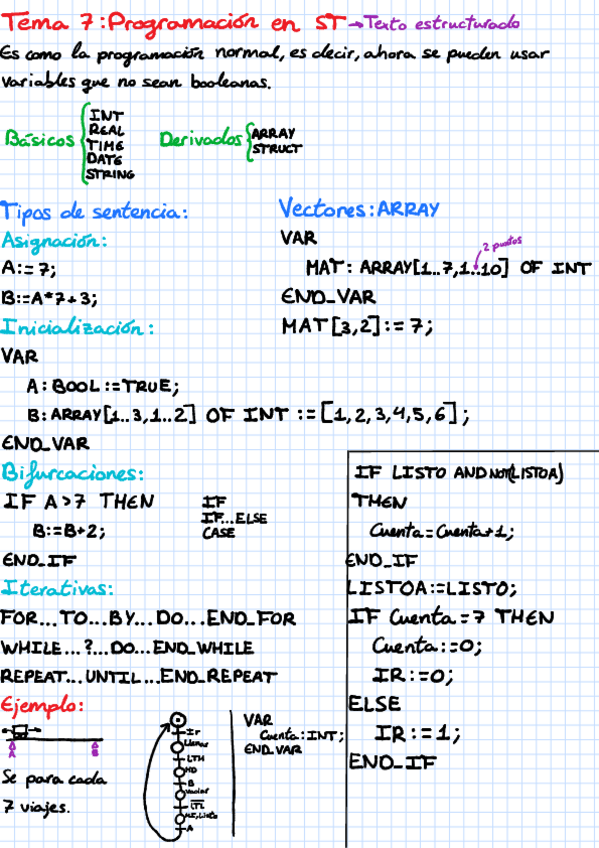 Tema 7: Programación en ST → Texto estructurado
Es como la programación normal, es decir, ahora se pueden usar
variables que no sean booleanas.
Básicos
INT
REAL
TIME
DATE
STRING
Derivados
ARRAY
STRUCT
Tipos de sentencia:
Asignación:
A:=7;
B:=A*7+3;
Inicialización:
VAR
A: BOOL :=TRUE;
B: ARRAY[1..3,1..2] OF INT := [1,2,3,4,5,6];
END_VAR
Vectores: ARRAY
VAR
2 puntos
MAT: ARRAY[1..7,1..10] OF INT
END_VAR
MAT[3,2]:= 7;
Bifurcaciones:
IF A>7 THEN
B:=B+2;
END_IF
IF
IF...ELSE
CASE
Iterativas:
FOR...TO...BY...DO...END_FOR
WHILE...?...DO...END_WHILE
REPEAT...UNTIL...END_REPEAT
Ejemplo:
A
B
Se para cada
7 viajes.
Ir
Llenar
LTH
MD
B
Vaciar
LTL
MI, Listo
A
VAR
Cuenta: INT;
END_VAR
IF LISTO AND NOT(LISTOA)
THEN
Cuenta=Cuenta+1;
END_IF
LISTOA:=LISTO;
IF Cuenta=7 THEN
Cuenta:=0;
IR:=0;
ELSE
IR:=1;
END_IF